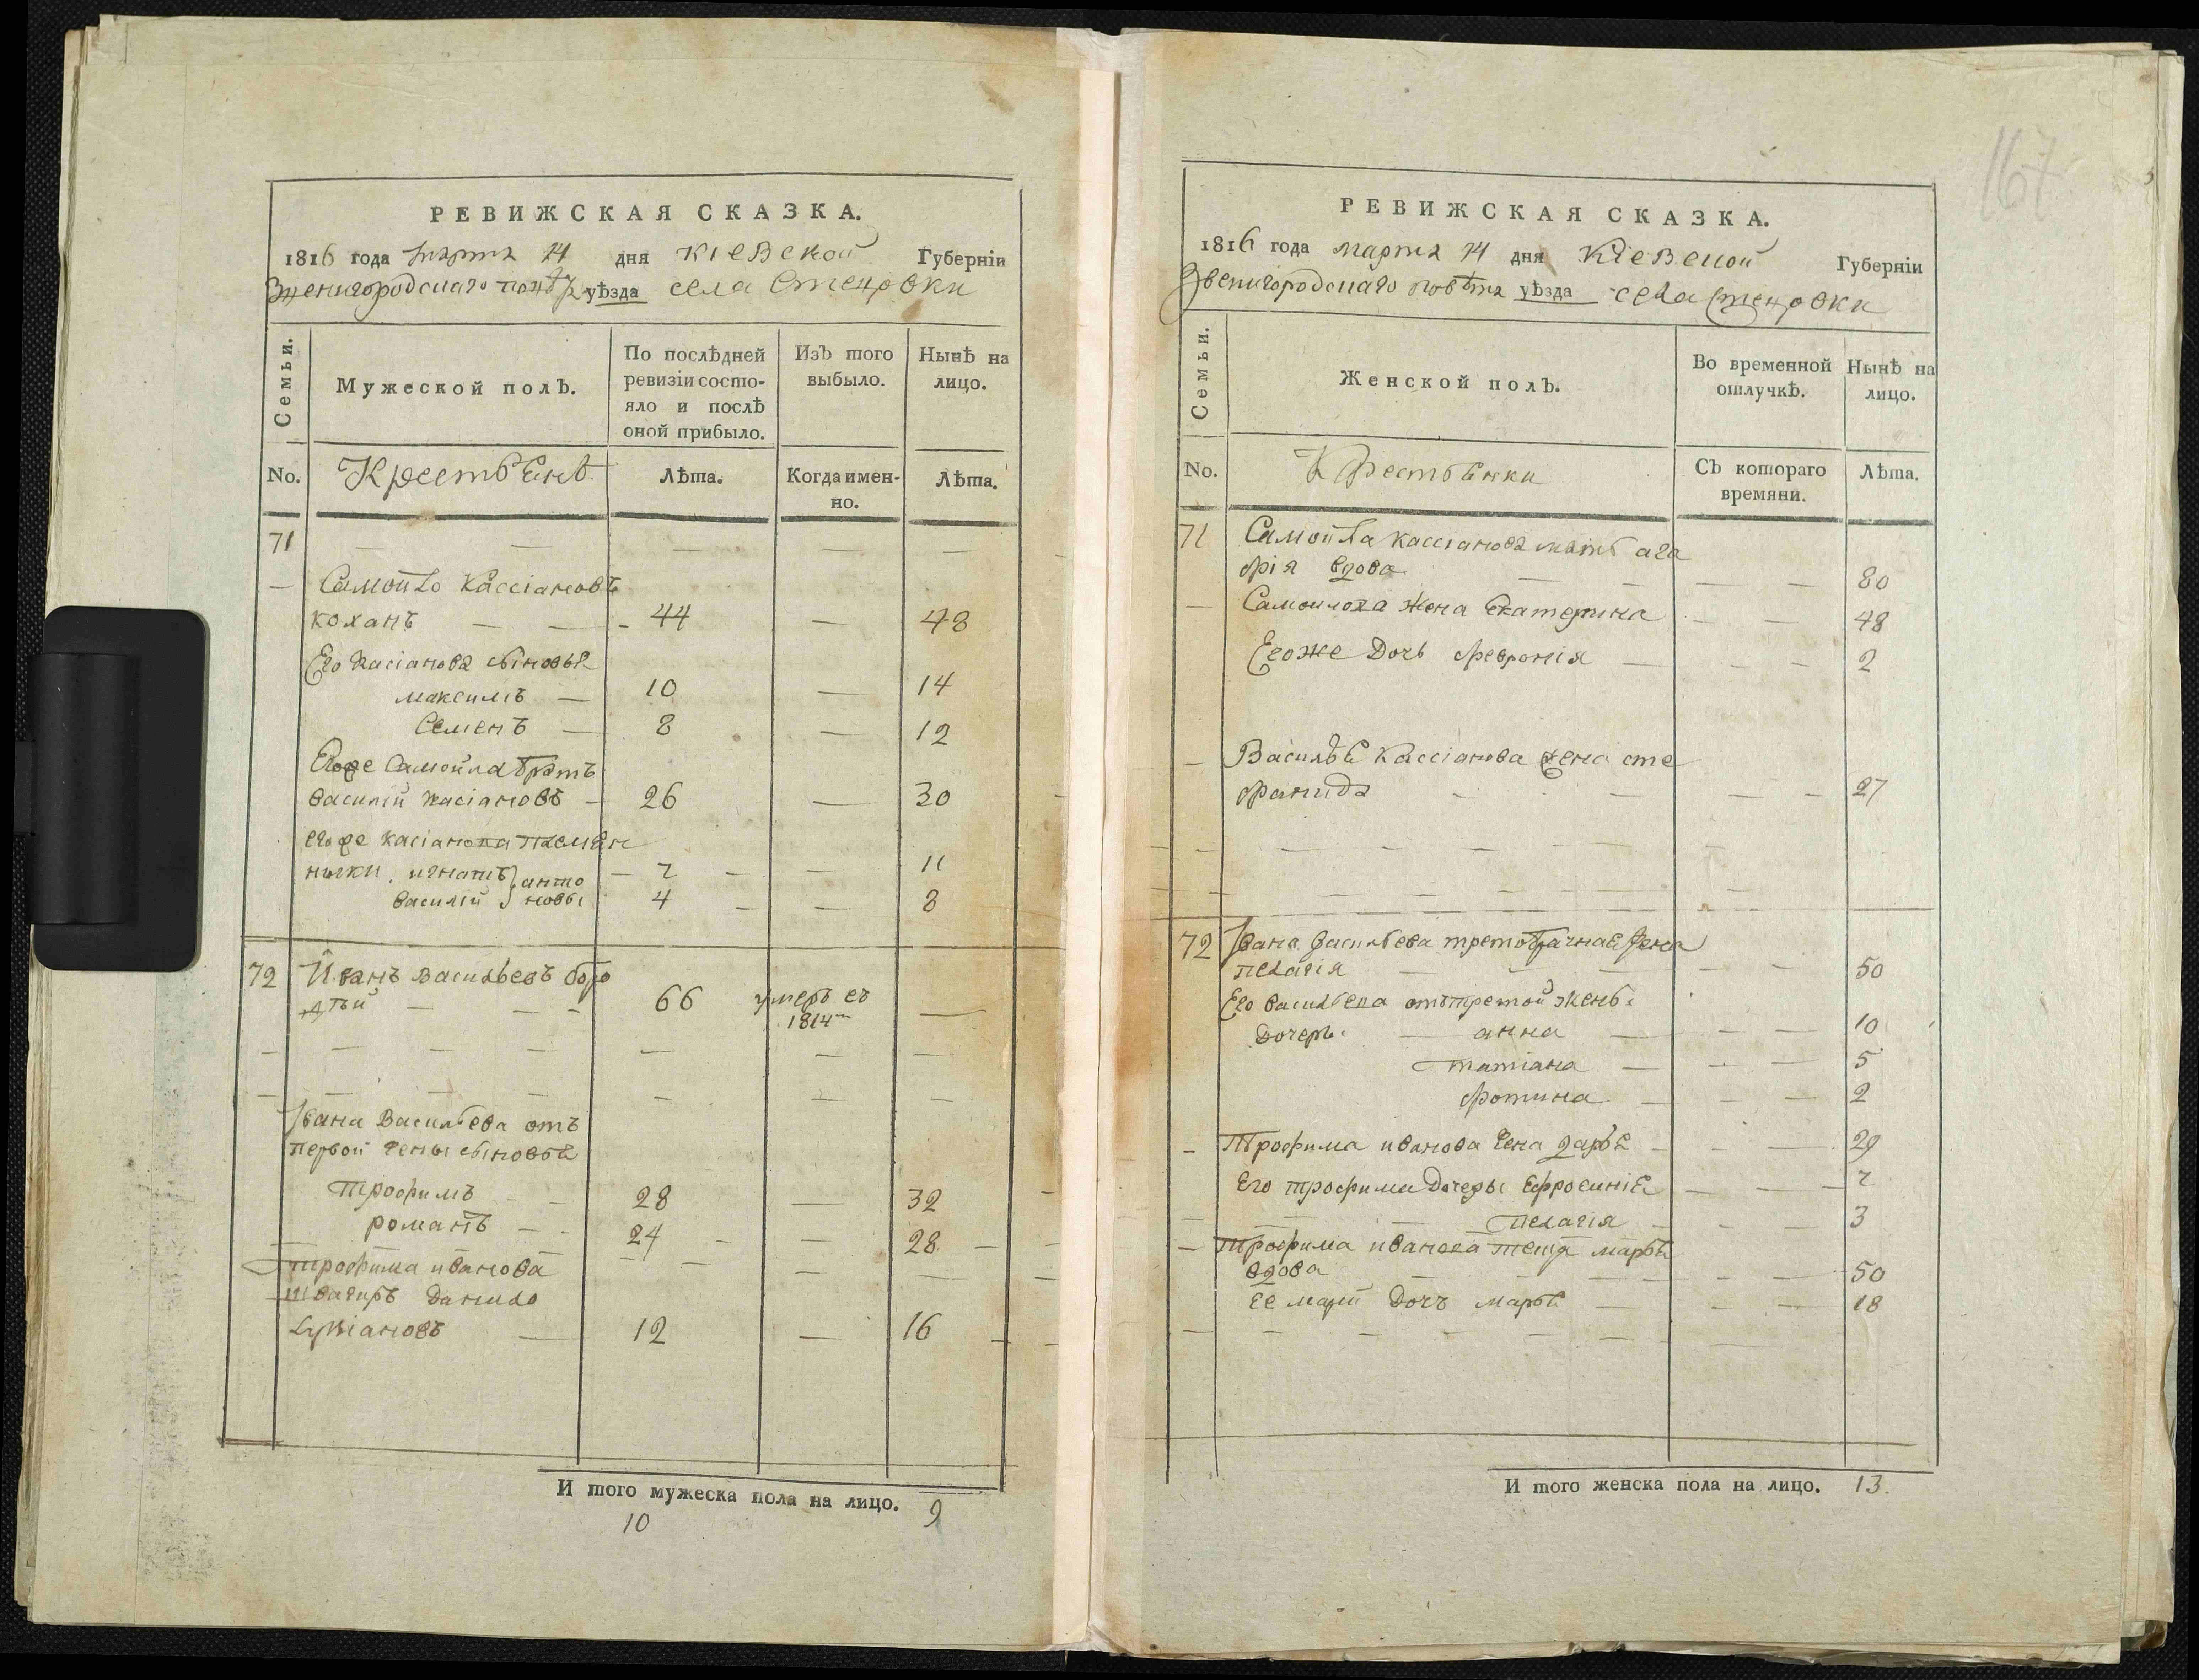 РЕВИЖСКАЯ СКАЗКА.
1816 года марта 14 дня Кіевской Губерніи
Звенигородскаго повѣта уѣзда села Стецовки
Семьи.
Мужеской полъ.
По послѣдней ревизіи состо-
яло и послѣ
оной прибыло.
Изъ того выбыло.
Нынѣ на лицо.
No.
Крестьяне
Лѣта.
Когда имен-
но.
Лѣта.
71
Самойло Кассіановъ
коханъ 44 48
Его Касіанова сыновья
максимъ 10 14
Семенъ 8 12
Егоже Самойла братъ
василій касіановъ 26 30
егоже касіанова племян
ники игнатъ 7 11
василій 4 8
анто
новы
72 Иванъ васильевъ боро
датый 66 умеръ въ
1814м
Ивана Васильева отъ
первой жены сыновья
Трофимъ 28 32
романъ 24 28
трофима иванова
швагиръ данило
лукіановъ 12 16
И того мужеска пола на лицо. 9
10
167
РЕВИЖСКАЯ СКАЗКА.
1816 года марта 14 дня Кіевской Губерніи
Звенигородскаго повѣта уѣзда села Стецовки
Семьи.
Женской полъ.
Во временной
отлучкѣ.
Нынѣ на
лицо.
No.
Крестьянки
Съ котораго
времяни.
Лѣта.
71 Самойла кассіанова мать ага
фія вдова 80
Самоилова жена екатерина 48
Егоже дочь февронія 2
Василья Кассіанова жена сте
фанида 27
72 Ивана васильева третобрачная жена
пелагія 50
Его васильева отъ третой жены
дочери анна 10
татіана 5
фотина 2
Трофима иванова жена дарья 29
Его трофима дочеры Ефросинія 7
пелагія 3
трофима иванова теща марья
вдова 50
ее марїи дочъ марья 18
И того женска пола на лицо. 13.